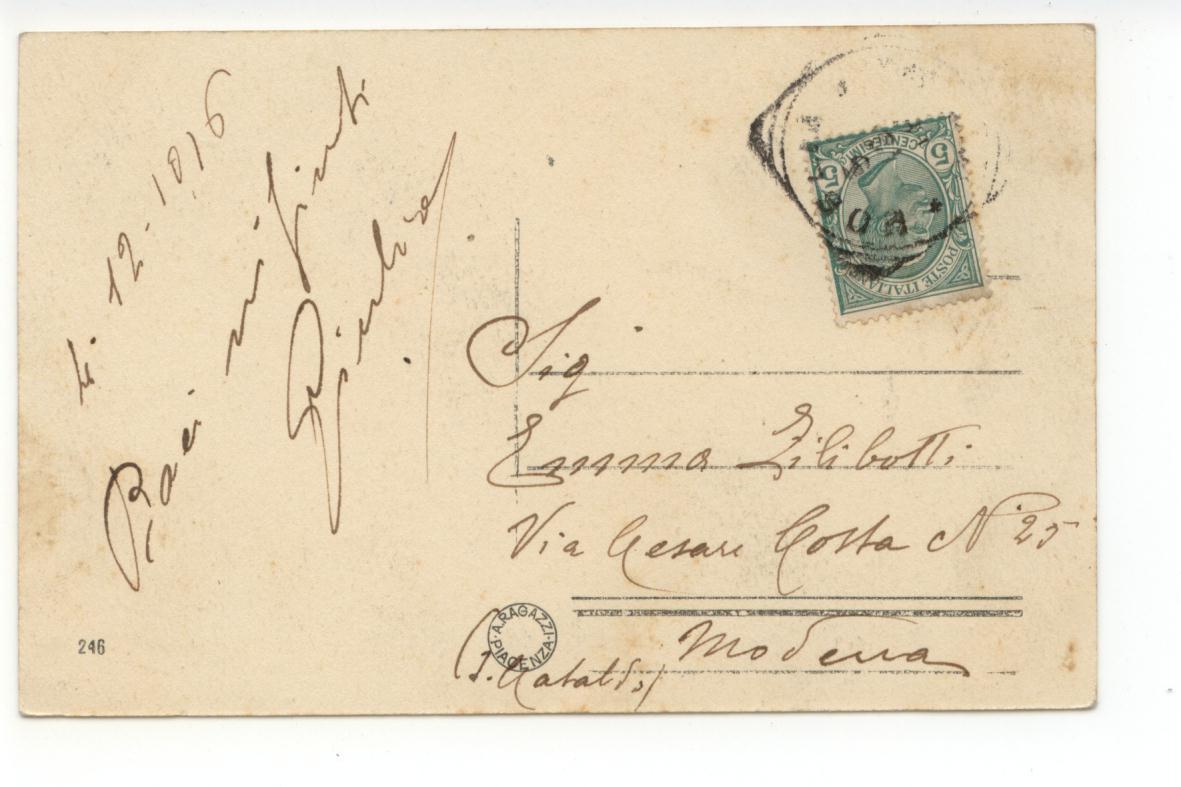 li 12-10,16
Baci infiniti
Sig
Emma Zilibotti
Via Cesare Costa N° 25
Modena
(S. Cataldo)
A. RAGAZZI
PIACENZA
246
POSTE ITALIANE
CENTESIMI
5 5